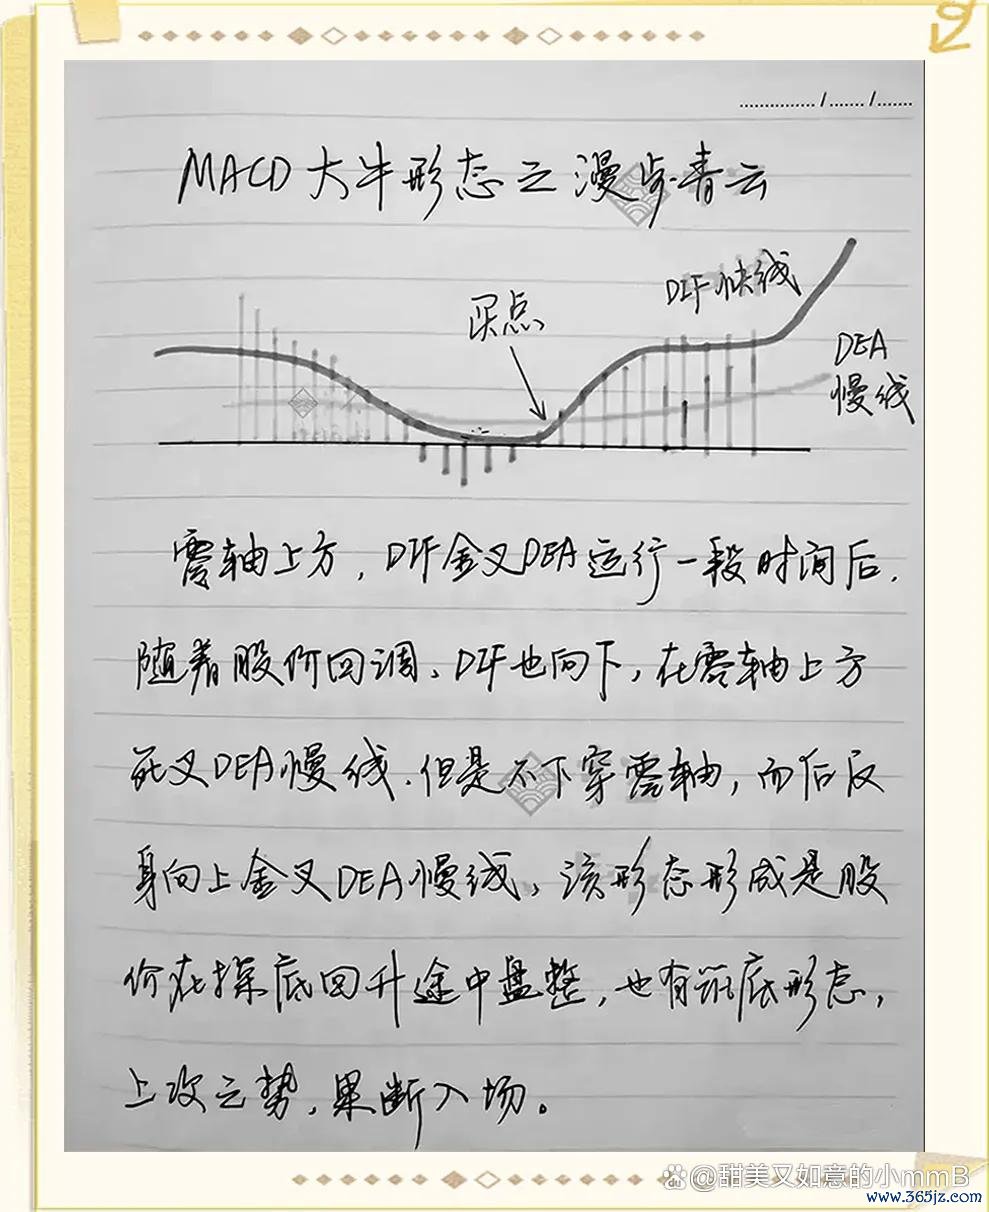 ............... / ....... / .......
MACD大牛形态之漫步青云
买点
DIF快线
DEA
慢线
零轴上方，DIF金叉DEA运行一段时间后，
随着股价回调，DIF也向下，在零轴上方
死叉DEA慢线.但是不下穿零轴，而后反
身向上金叉DEA慢线，该形态形成是股
价在探底回升途中盘整，也有筑底形态，
上攻之势，果断入场。
@甜美又如意的小mmB
www.365jz.com